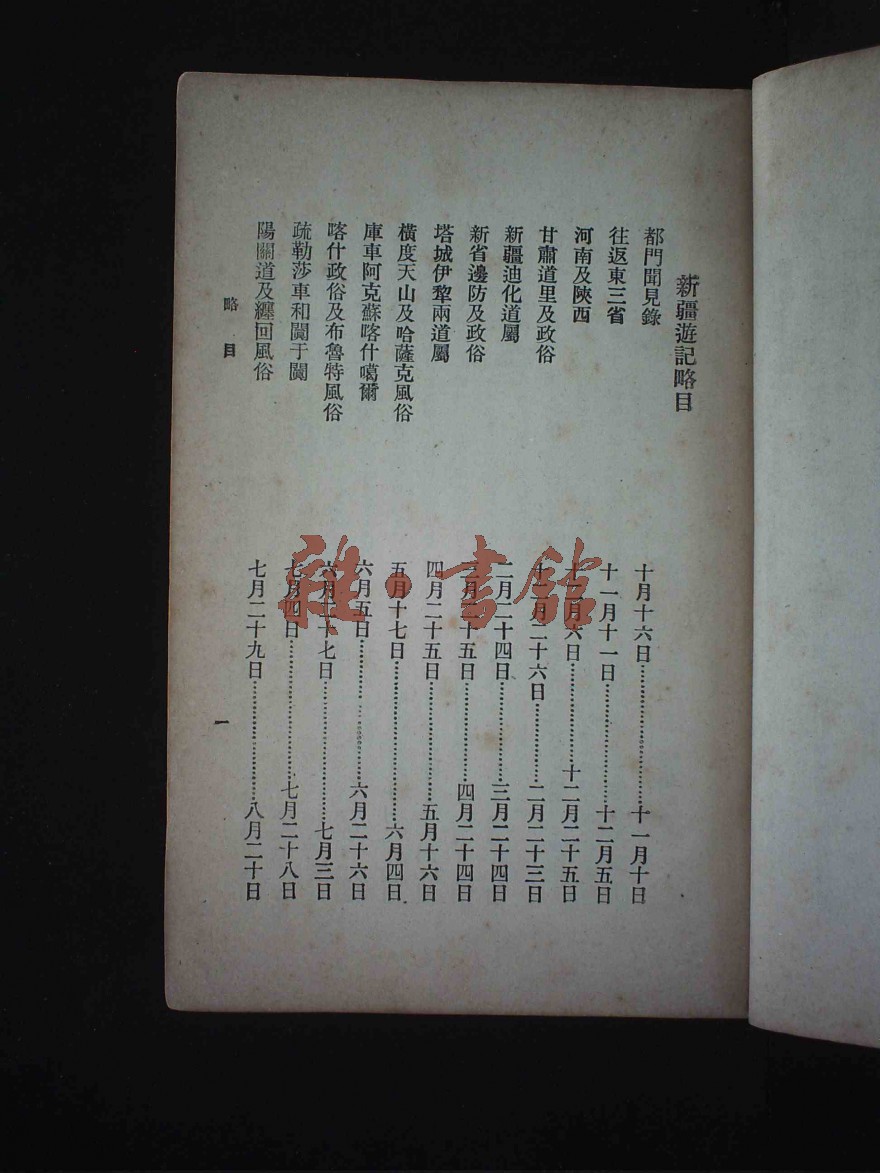 新疆遊記略目
都門聞見錄 十月十六日……十一月十日
往返東三省 十一月十一日……十二月五日
河南及陝西 十二月六日……十二月二十五日
甘肅道里及政俗 十二月二十六日……二月二十三日
新疆迪化道屬 二月二十四日……三月二十四日
新省邊防及政俗 三月二十五日……四月二十四日
塔城伊犂兩道屬 四月二十五日……五月十六日
橫度天山及哈薩克風俗 五月十七日……六月四日
庫車阿克蘇喀什噶爾 六月五日……六月二十六日
喀什政俗及布魯特風俗 六月二十七日……七月三日
疏勒莎車和闐于闐 七月四日……七月二十八日
陽關道及纏回風俗 七月二十九日……八月二十日
略目
一
雜·書館